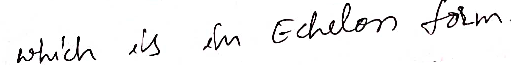 which is in Echelon form.